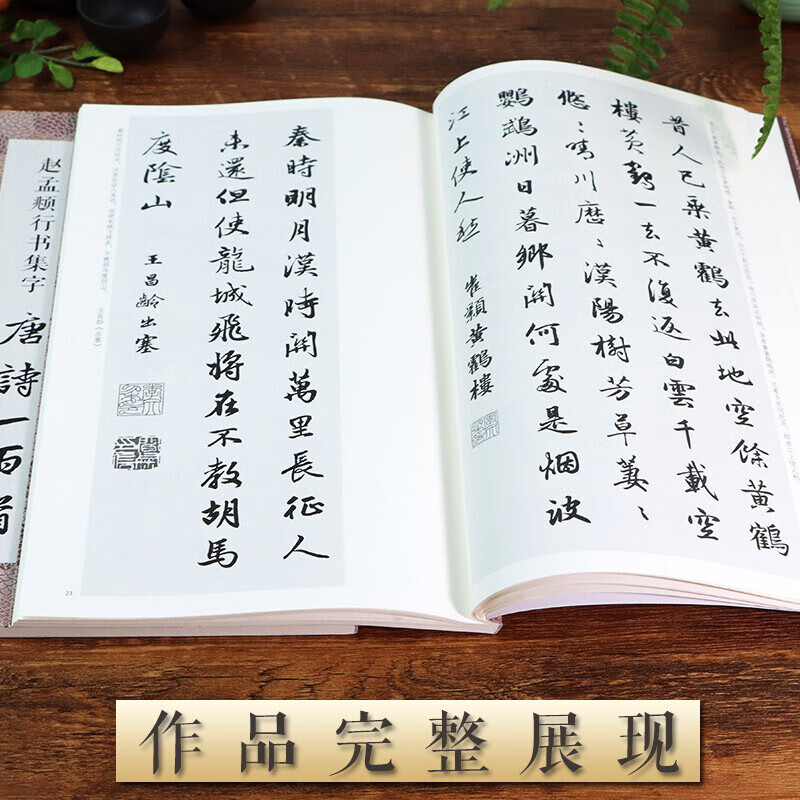 昔人已乗黄鶴去此地空餘黄鶴
樓黄鶴一去不復返白雲千載空
悠〻晴川歷〻漢陽樹芳草萋〻
鸚鵡洲日暮鄉関何處是烟波
江上使人愁
崔顥黄鶴樓
秦時明月漢時関萬里長征人
未還但使龍城飛将在不教胡馬
度陰山
王昌齡出塞
王昌龄《出塞》
23
赵孟頫行书集字
唐詩一百首
作品完整展现